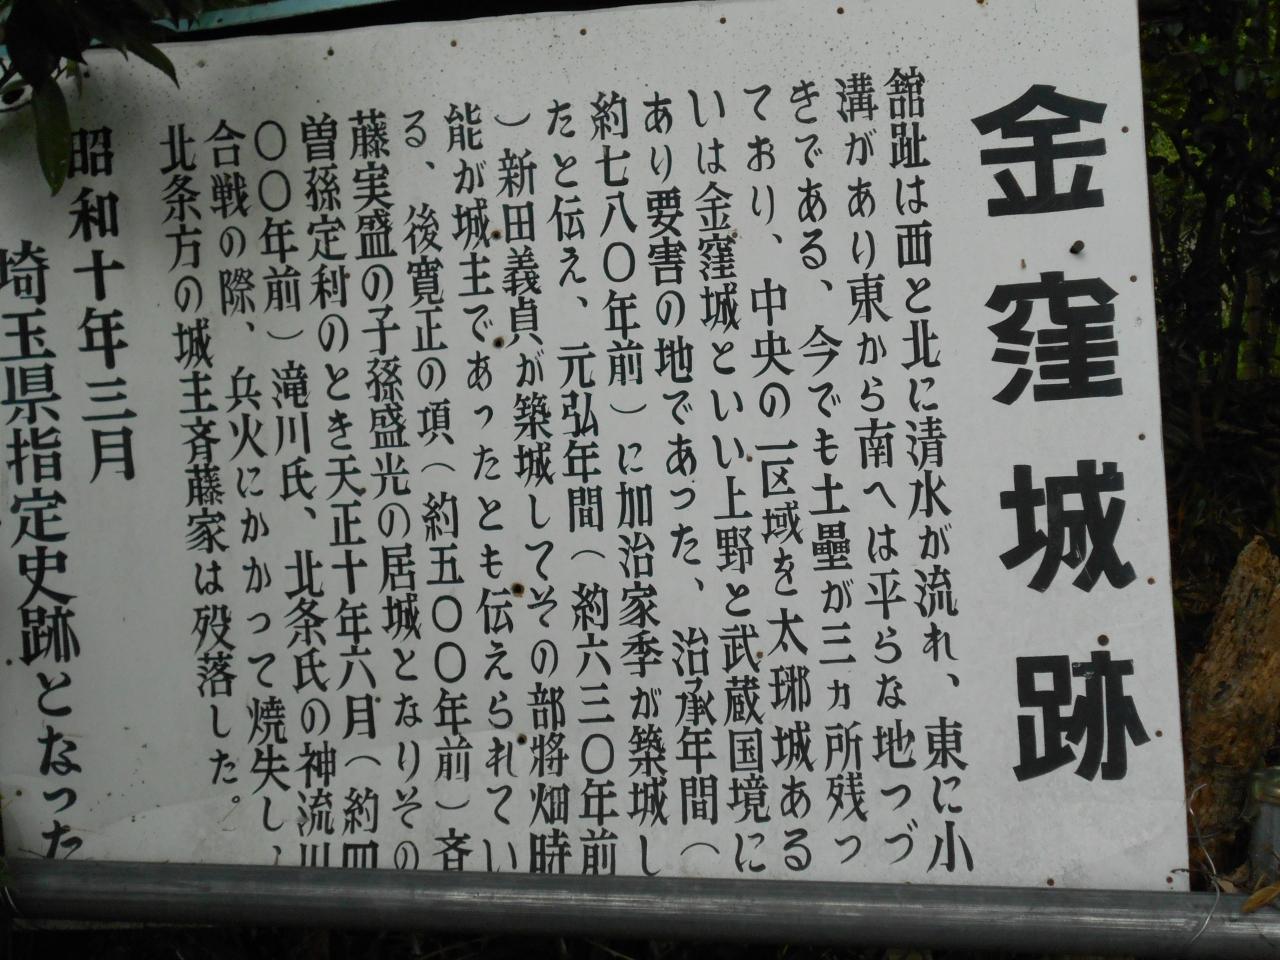 金窪城跡
舘趾は西と北に清水が流れ、東に小
溝があり東から南へは平らな地つづ
きである、今でも土壘が三ヵ所残っ
ており、中央の一区域を太琊城ある
いは金窪城といい上野と武蔵国境に
あり要害の地であった、治承年間（
約七八〇年前）に加治家季が築城し
たと伝え、元弘年間（約六三〇年前
）新田義貞が築城してその部將畑時
能が城主であったとも伝えられてい
る、後寛正の項（約五〇〇年前）斉
藤実盛の子孫盛光の居城となりその
曽孫定利のとき天正十年六月（約四
〇〇年前）滝川氏、北条氏の神流川
合戦の際、兵火にかかって焼失し、
北条方の城主斉藤家は歿落した。
昭和十年三月
埼玉県指定史跡となった